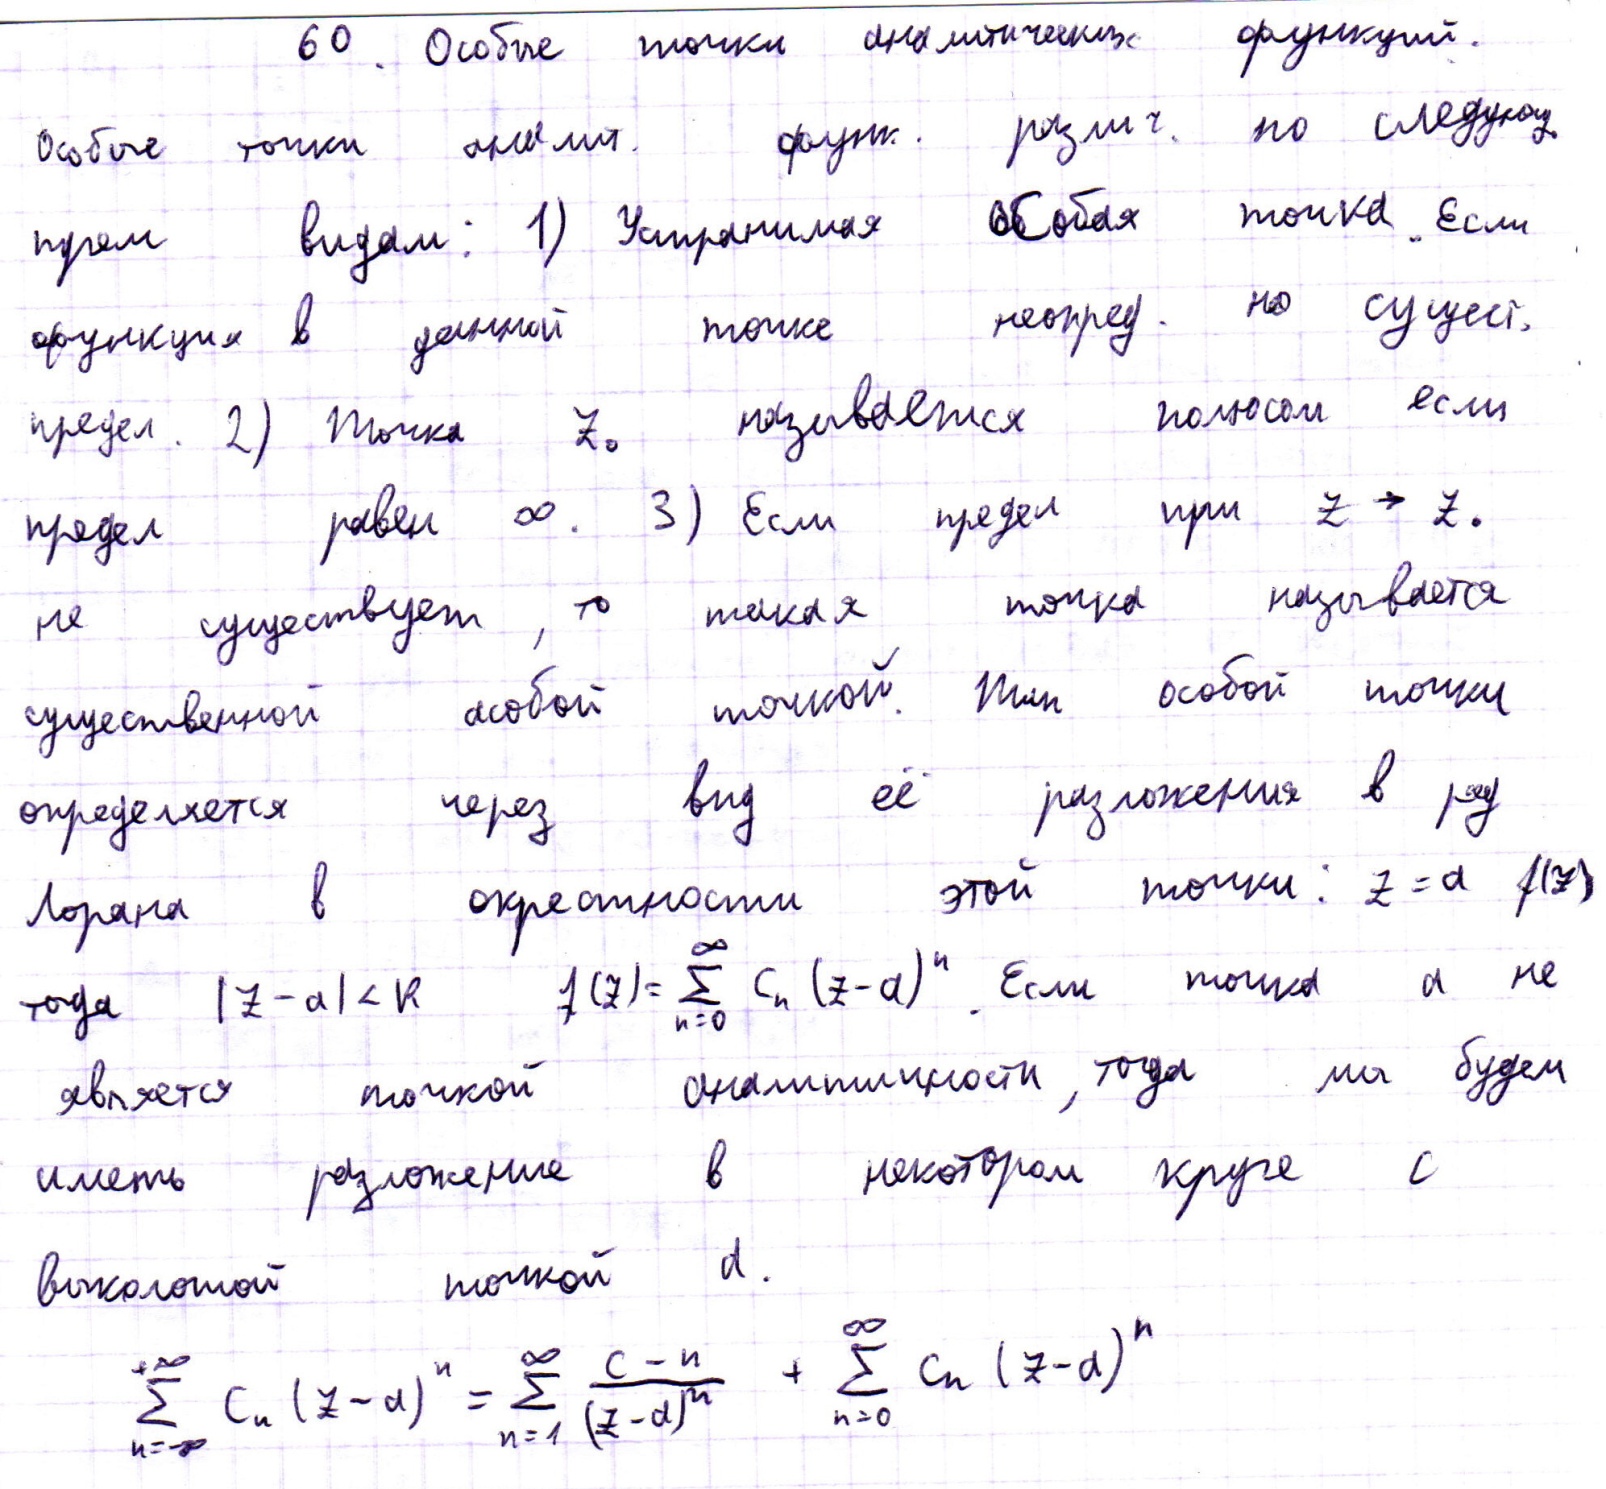 60. Особые точки аналитических функций.
Особые точки аналит. функ. различ. по следующ.
трем видам: 1) Устранимая особая точка. Если
функция в данной точке неопред. но сущест.
предел. 2) Точка z₀ называется полюсом если
предел равен ∞. 3) Если предел при z → z₀
не существует, то такая точка называется
существенной особой точкой. Тип особой точки
определяется через вид её разложения в ряд
Лорана в окрестности этой точки: z = a f(z)
тогда |z - a| < R f(z) = ∑_{n=0}^{∞} Cₙ (z-a)ⁿ. Если точка a не
является точкой аналитичности, тогда мы будем
иметь разложение в некотором круге с
выколотой точкой a.
∑_{n=-∞}^{+∞} Cₙ (z-a)ⁿ = ∑_{n=1}^{∞} \frac{C-n}{(z-a)ⁿ} + ∑_{n=0}^{∞} Cₙ (z-a)ⁿ